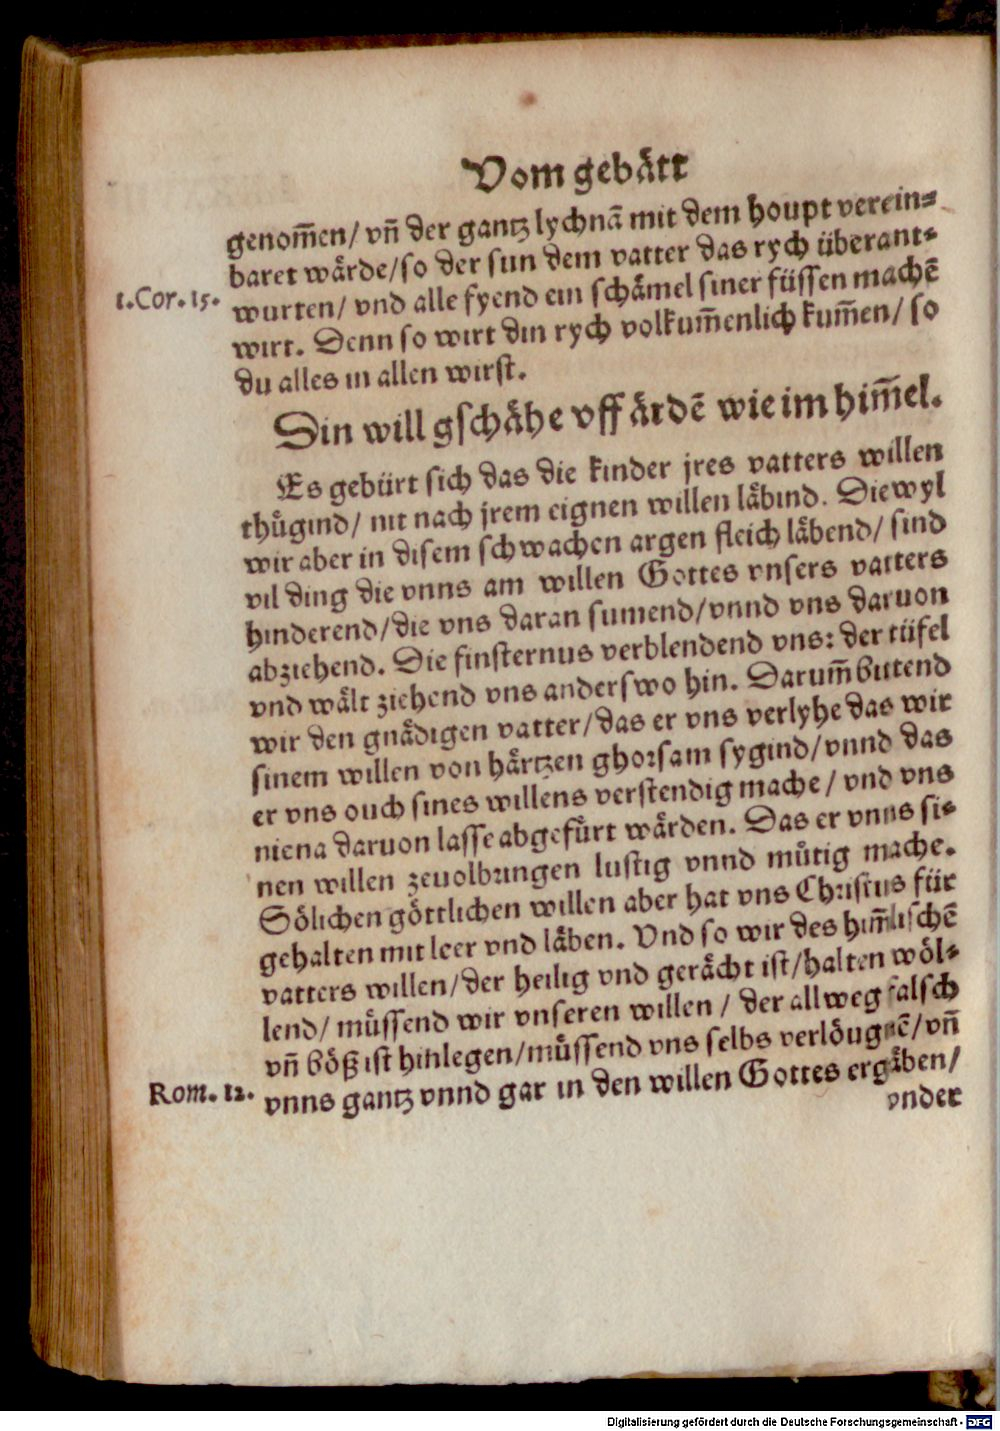 Vom gebätt
genom̄en/ vn̄ der gantz lychnā mit dem houpt verein⸗
baret wärde/ so der sun dem vatter das rych überant⸗
1. Cor. 15. wurten/ vnd alle fyend ein schämel siner füssen machē
wirt. Denn so wirt din rych volkum̄enlich kum̄en/ so
du alles in allen wirst.
Din will gschähe vff ärdē wie im him̄el.
Es gebürt sich das die kinder jres vatters willen
thuͤgind/ nit nach jrem eignen willen läbind. Diewyl
wir aber in disem schwachen argen fleich läbend/ sind
vil ding die vnns am willen Gottes vnsers vatters
hinderend/ die vns daran sumend/ vnnd vns daruon
abziehend. Die finsternus verblendend vns: der tüfel
vnd wält ziehend vns anderswo hin. Darum̄ butend
wir den gnädigen vatter/ das er vns verlyhe das wir
sinem willen von härtzen ghorsam sygind/ vnnd das
er vns ouch sines willens verstendig mache/ vnd vns
niena daruon lasse abgefürt wärden. Das er vnns si⸗
nen willen zeuolbringen lustig vnnd muͤtig mache.
Sölichen göttlichen willen aber hat vns Christus für
gehalten mit leer vnd läben. Vnd so wir des him̄lischē
vatters willen/ der heilig vnd gerächt ist/ halten wöl⸗
lend/ muͤssend wir vnseren willen/ der allweg falsch
vn̄ böß ist hinlegen/ muͤssend vns selbs verlöugnē/ vn̄
Rom. 12. vnns gantz vnnd gar in den willen Gottes ergäben/
vnder
Digitalisierung gefördert durch die Deutsche Forschungsgemeinschaft - DFG